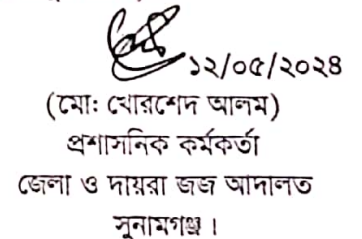 ১২/০৫/২০২৪
(মো: খোরশেদ আলম)
প্রশাসনিক কর্মকর্তা
জেলা ও দায়রা জজ আদালত
সুনামগঞ্জ।